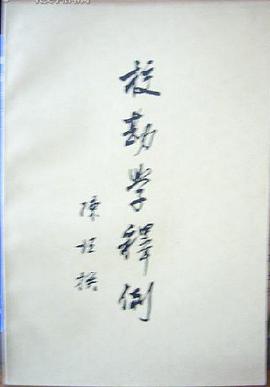 校勘學釋例
陳垣撰